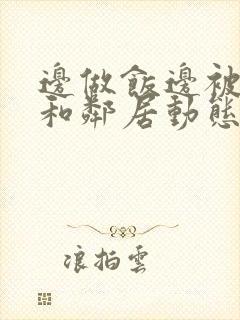 邊做飯邊被
和鄰居動態
浪拍雲